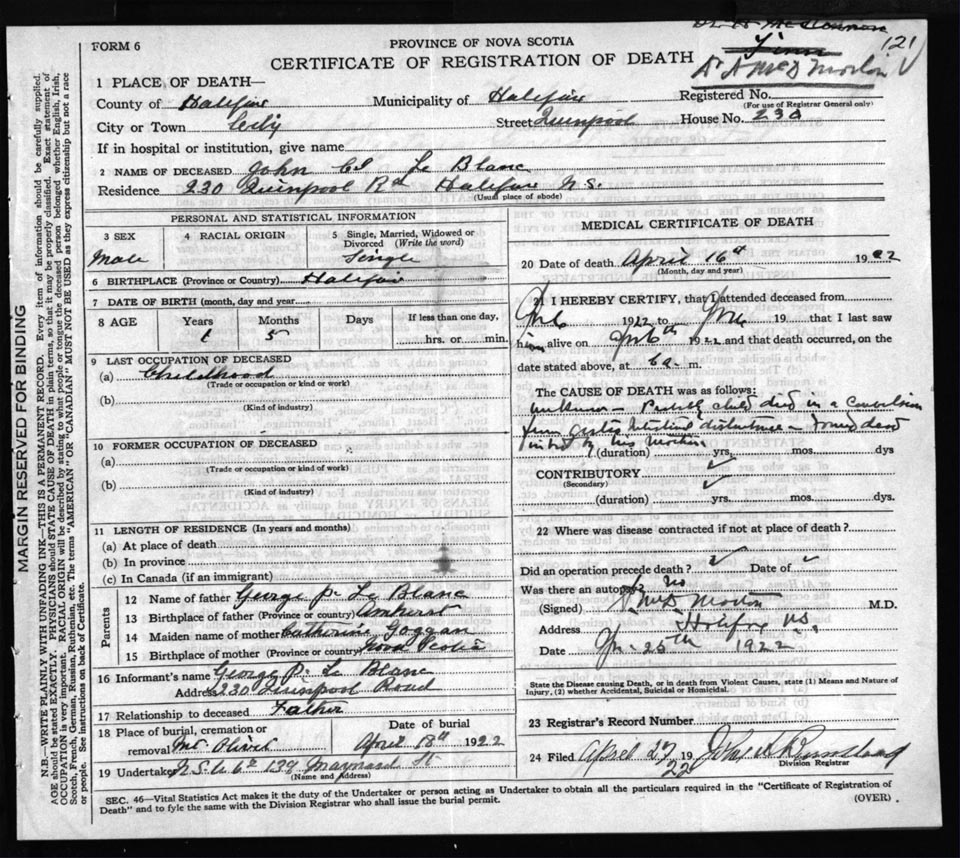 121
FORM 6
PROVINCE OF NOVA SCOTIA
CERTIFICATE OF REGISTRATION OF DEATH
Dr A McD Morton
1 PLACE OF DEATH—
County of Halifax Municipality of Halifax Registered No.
(For use of Registrar General only)
City or Town City Street Quinpool House No. 230
If in hospital or institution, give name
2 NAME OF DECEASED John Le Blanc
Residence 230 Quinpool Rd Halifax N.S.
(Usual place of abode)
PERSONAL AND STATISTICAL INFORMATION
3 SEX 4 RACIAL ORIGIN 5 Single, Married, Widowed or Divorced (Write the word)
Male Single
6 BIRTHPLACE (Province or Country) Halifax
7 DATE OF BIRTH (month, day and year)
8 AGE Years Months Days If less than one day,
5 hrs. or min.
9 LAST OCCUPATION OF DECEASED
(a) Childhood
(Trade or occupation or kind or work)
(b)
(Kind of industry)
10 FORMER OCCUPATION OF DECEASED
(a)
(Trade or occupation or kind of work)
(b)
(Kind of industry)
11 LENGTH OF RESIDENCE (In years and months)
(a) At place of death
(b) In province
(c) In Canada (if an immigrant)
Parents
12 Name of father George P. Le Blanc
13 Birthplace of father (Province or country) Amherst
14 Maiden name of mother Catherine Goggan
15 Birthplace of mother (Province or country) Nova Scotia
16 Informant's name George P. Le Blanc
Address 230 Quinpool Road
17 Relationship to deceased Father
18 Place of burial, cremation or removal Mt Olivet Date of burial April 18th 1922
19 Undertaker N.S.U. Co 139 Maynard St
(Name and Address)
MEDICAL CERTIFICATE OF DEATH
20 Date of death April 16th 1922
(Month, day and year)
21 I HEREBY CERTIFY, that I attended deceased from
1922 to 19 that I last saw
him alive on 1922 and that death occurred, on the
date stated above, at 6 a. m.
The CAUSE OF DEATH was as follows:
unknown — child died in a convulsion
from gastro intestinal disturbance — found dead
in bed by his mother
(duration) yrs. mos. dys
CONTRIBUTORY
(Secondary)
(duration) yrs. mos. dys.
22 Where was disease contracted if not at place of death?
Did an operation precede death? Date of
Was there an autopsy? No
(Signed) A McD Morton M.D.
Address Halifax N.S.
Date 25th 1922
State the Disease causing Death, or in death from Violent Causes, state (1) Means and Nature of Injury, (2) whether Accidental, Suicidal or Homicidal.
23 Registrar's Record Number
24 Filed April 27 22
Division Registrar
SEC. 46—Vital Statistics Act makes it the duty of the Undertaker or person acting as Undertaker to obtain all the particulars required in the "Certificate of Registration of
Death" and to fyle the same with the Division Registrar who shall issue the burial permit. (OVER)
MARGIN RESERVED FOR BINDING
N.B.—WRITE PLAINLY WITH UNFADING INK—THIS IS A PERMANENT RECORD. Every item of information should be carefully supplied.
AGE should be stated EXACTLY. PHYSICIANS should STATE CAUSE OF DEATH in plain terms, so that it may be properly classified. Exact statement of
OCCUPATION is very important. RACIAL ORIGIN will be described by stating to what people or tongue the deceased person belonged whether English, Irish,
Scotch, French, German, Russian, Ruthenian, etc. The terms "AMERICAN" OR "CANADIAN" MUST NOT BE USED as they express citizenship but not a race
or people. See instructions on back of Certificate.